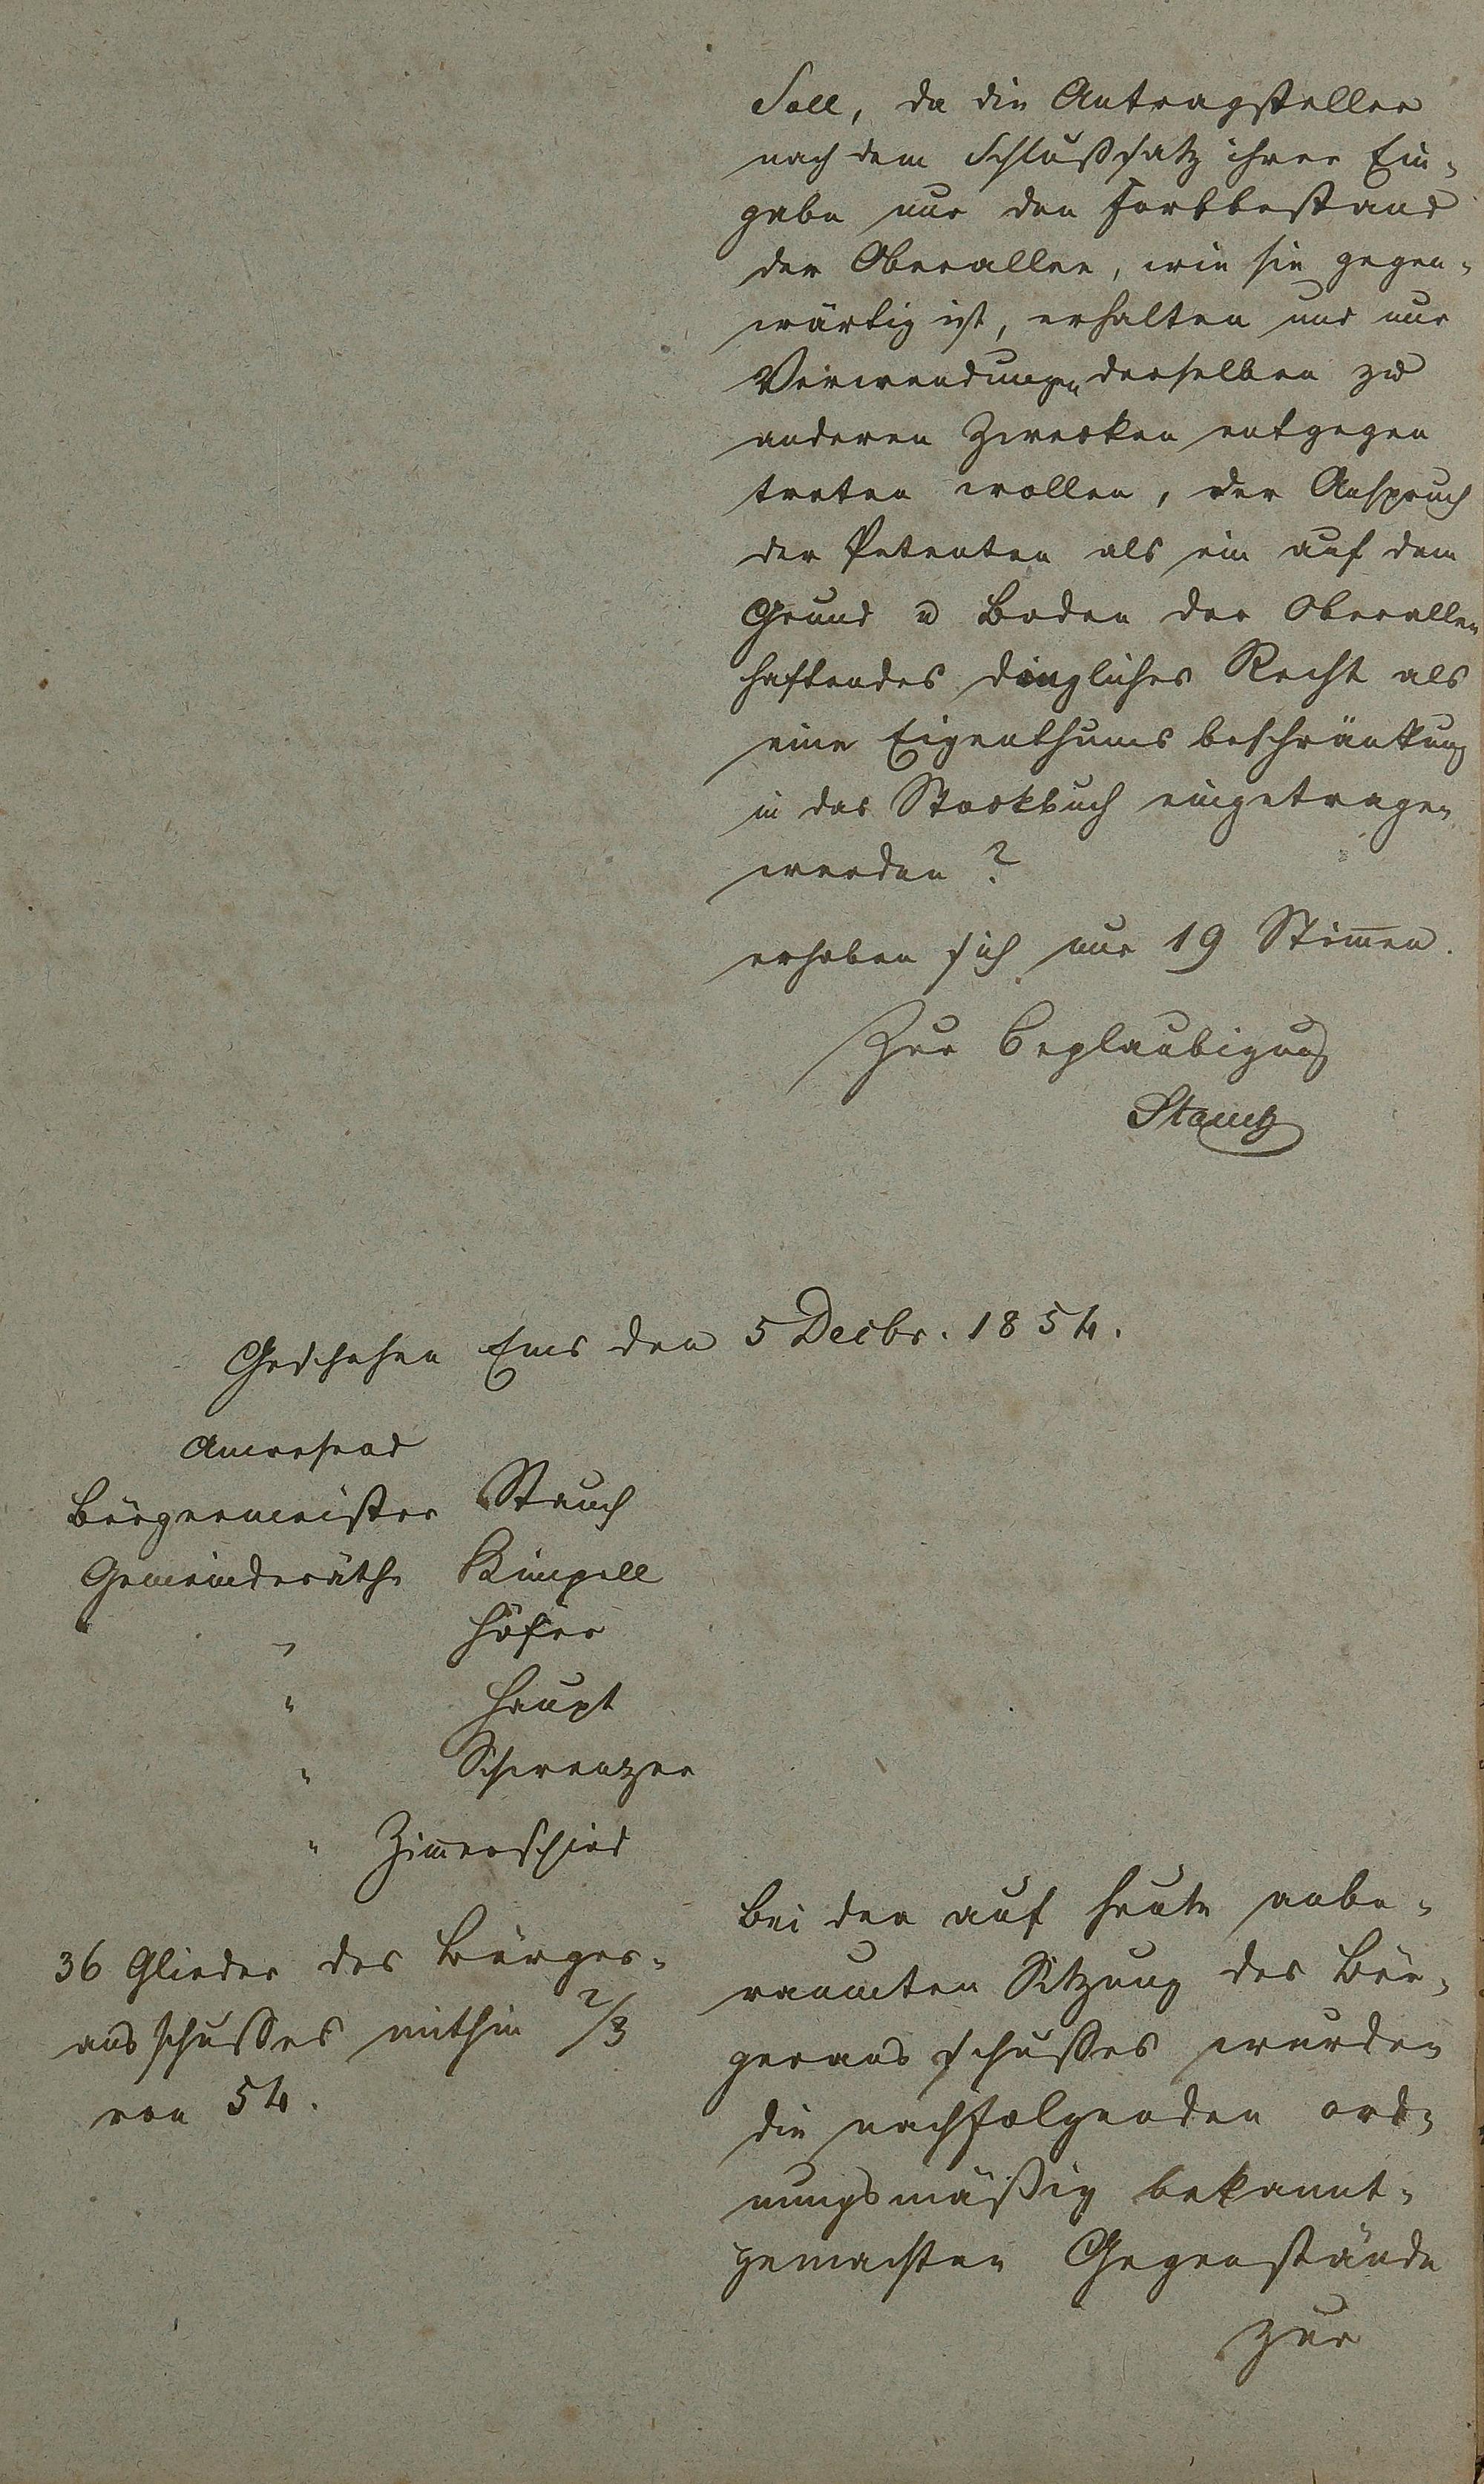 Soll, da die Antragsteller
nach dem Schlußsatz ihrer Ein-
gabe nur den Fortbestand
der Oberallee, wie sie gegen-
wärtig ist, erhalten und nur
Verwendungen derselben zu
anderen Zwecken entgegen
treten wollen, der Anspruch
der Petenten als ein auf dem
Grund u Boden der Oberallee
haftendes dingliches Recht als
eine Eigenthums beschränkung
in das Stockbuch eingetragen
werden?
erhoben sich nur 19 Stimmen.
Zur Beglaubigung
Geschehen Ems den 5 Decbr. 1854.
Anwesend
Bürgermeister Stauch
Gemeinderäthe Kimpell
" Höfer
" Haupt
" Schwenzer
" Zimmerschied
36 Glieder des Bürger-
ausschußes mithin 2/3
von 54.
Bei der auf heute anbe-
raumten Sitzung des Bür-
gerausschußes wurden
die nachfolgenden ord-
nungsmäßig bekannt-
gemachten Gegenstände
zur